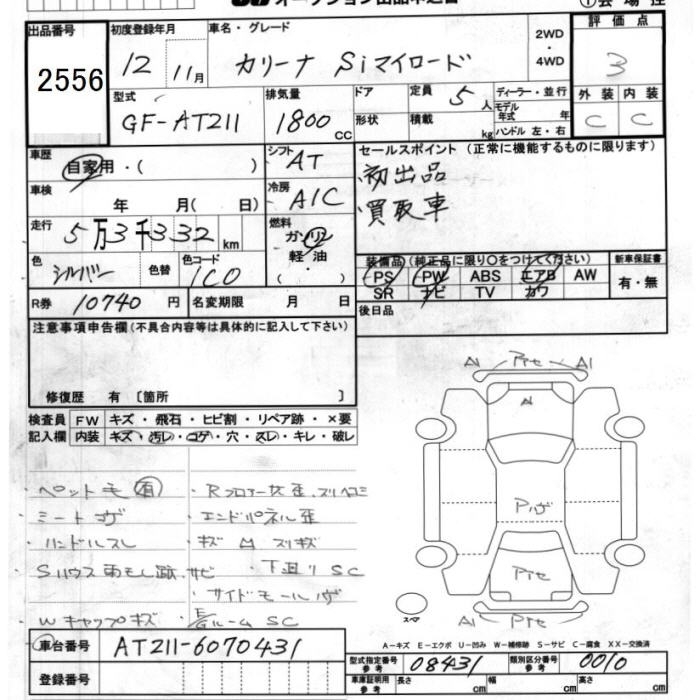 出品番号 初度登録年月 車名・グレード 2WD・4WD 評価点
2556 12 11月 カリーナ Siマイロード 3
型式 排気量 ドア 定員 5人 ディーラー・並行 外装 内装
GF-AT211 1800cc 形状 積載 kg モデル年式 年 ハンドル 左・右 C C
車歴 シフト AT セールスポイント (正常に機能するものに限ります)
自家用・( ) 初出品
車検 冷房 A/C 買取車
年 月( 日)
走行 5万3千332km 燃料 ガソリン
軽・油
( )
色 シルバー 色替 色コード 1C0 装備品 (純正品に限り○をつけてください) 新車保証書
PS PW ABS エアB AW 有・無
SR ナビ TV カワ
R券 10740円 名変期限 月 日 後日品
注意事項申告欄(不具合内容等は具体的に記入して下さい)
修復歴 有 〔箇所 〕
検査員 FW キズ・飛石・ヒビ割・リペア跡・×要
記入欄 内装 キズ・汚レ・コゲ・穴・スレ・キレ・破レ
・ペット毛 有 ・Rフロアー
・シートコゲ ・エンドパネル歪
・ハンドルスレ ・キズ A スリキズ
・Sハウス 跡、サビ ・下廻り SC
・サイドモールハゲ
・Wキャップキズ ルーム SC
A1 A1
A
Pハゲ
スペア A1
A-キズ E-エクボ U-凹み W-補修跡 S-サビ C-腐食 XX-交換済
車台番号 AT211-6070431
型式指定番号 参考 08431 類別区分番号 参考 0010
登録番号 車庫証明用 参考 長さ cm 幅 cm 高さ cm